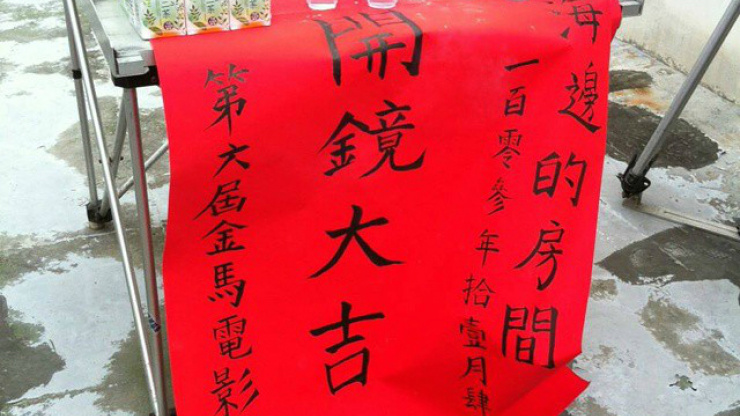 海邊的房間
一百零參年拾壹月肆
開鏡大吉
第六屆金馬電影